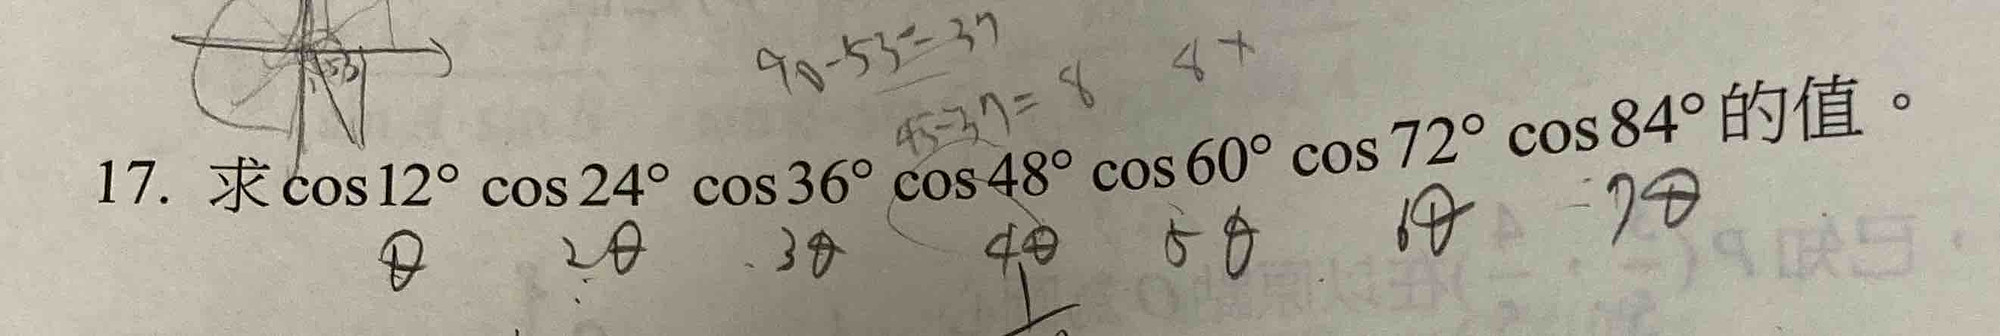 90-53=37
45-37=8
8+
53
17. 求 cos12° cos24° cos36° cos48° cos60° cos72° cos84° 的值。
θ 2θ 3θ 4θ 5θ 6θ 7θ